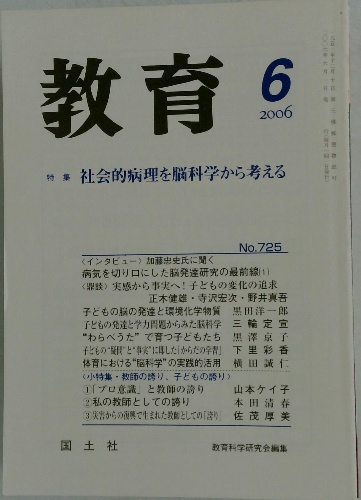 教育
6
2006
特集 社会的病理を脳科学から考える
No.725
〈インタビュー〉加藤忠史氏に聞く
病気を切り口にした脳発達研究の最前線(1)
〈鼎談〉実感から事実へ!子どもの変化の追求
正木健雄・寺沢宏次・野井真吾
子どもの脳の発達と環境化学物質 黒田洋一郎
子どもの発達と学力問題からみた脳科学 三輪定宣
“わらべうた”で育つ子どもたち 黒澤京子
子どもの“疑問”と“事実”に即した「からだの学習」 下里彩香
体育における“脳科学”の実践的活用 横田誠仁
〈小特集・教師の誇り、子どもの誇り〉
①「プロ意識」と教師の誇り 山本ケイ子
②私の教師としての誇り 本田清春
③災害からの復興で生まれた教師としての「誇り」 佐茂厚美
国土社
教育科学研究会編集